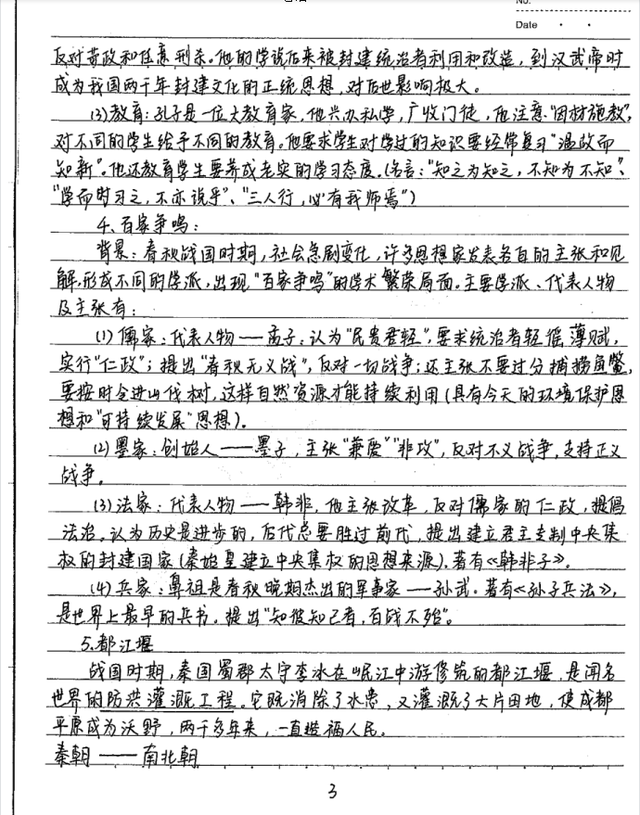 No.
Date
反对苛政和任意刑杀。他的学说后来被封建统治者利用和改造，到汉武帝时
成为我国两千年封建文化的正统思想，对后世影响极大。
(3)教育：孔子是一位大教育家，他兴办私学，广收门徒，他注意“因材施教”，
对不同的学生给予不同的教育。他要求学生对学过的知识要经常复习“温故而
知新”。他还教育学生要养成老实的学习态度。(名言：“知之为知之，不知为不知”、
“学而时习之，不亦说乎”、“三人行，必有我师焉”)
4、百家争鸣：
背景：春秋战国时期，社会急剧变化，许多思想家发表各自的主张和见
解，形成不同的学派，出现“百家争鸣”的学术繁荣局面。主要学派、代表人物
及主张有：
(1)儒家：代表人物——孟子：认为“民贵君轻”，要求统治者轻徭薄赋，
实行“仁政”；提出“春秋无义战”，反对一切战争；还主张不要过分捕捞鱼鳖，
要按时令进山伐树，这样自然资源才能持续利用(具有今天的环境保护思
想和“可持续发展”思想)。
(2)墨家：创始人——墨子，主张“兼爱”“非攻”，反对不义战争，支持正义
战争。
(3)法家：代表人物——韩非，他主张改革，反对儒家的仁政，提倡
法治。认为历史是进步的，后代总要胜过前代，提出建立君主专制中央集
权的封建国家(秦始皇建立中央集权的思想来源)。著有《韩非子》。
(4)兵家：鼻祖是春秋晚期杰出的军事家——孙武。著有《孙子兵法》，
是世界上最早的兵书，提出“知彼知己者，百战不殆”。
5.都江堰
战国时期，秦国蜀郡太守李冰在岷江中游修筑的都江堰，是闻名
世界的防洪灌溉工程。它既消除了水患，又灌溉了大片田地，使成都
平原成为沃野，两千多年来，一直造福人民。
秦朝——南北朝
3